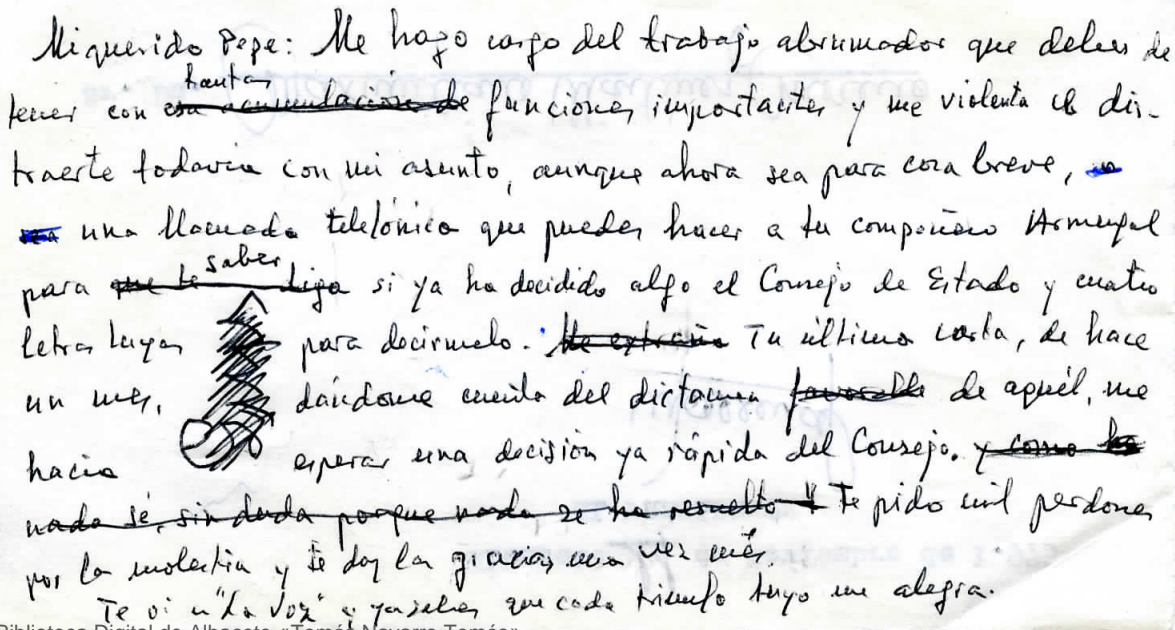 Mi querido Pepe: Me hago cargo del trabajo abrumador que debes de
tener con esa acumulación de tantas funciones importantes y me violenta el dis-
traerte todavía con mi asunto, aunque ahora sea para cosa breve,
sea una llamada telefónica que puedes hacer a tu compañero Armengol
para que te diga saber si ya ha decidido algo el Consejo de Estado y cuatro
letras tuyas para decírmelo. Me extraña Tu última carta, de hace
un mes, dándome cuenta del dictamen favorable de aquél, me
hacía esperar una decisión ya rápida del Consejo. y como
nada sé, sin duda porque nada se ha resuelto Te pido mil perdones
por la molestia y te doy las gracias una vez más.
Te vi en "La Voz" y ya sabes que cada triunfo tuyo me alegra.
Biblioteca Digital de Albacete «Tomás Navarro Tomás»